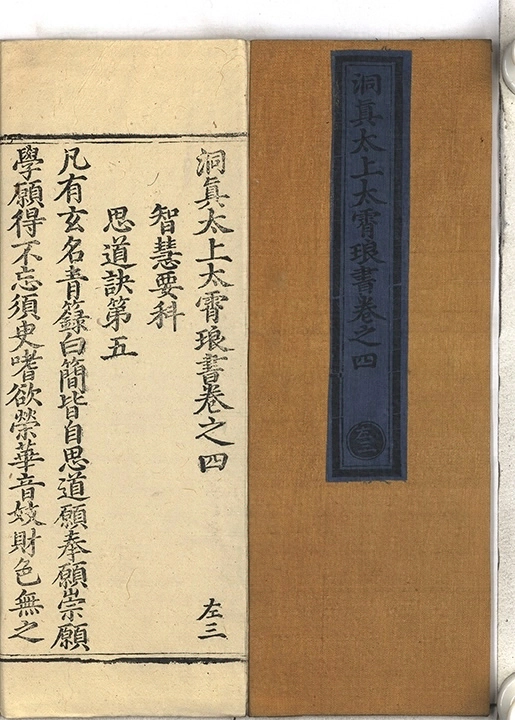 洞真太上太霄琅書卷之四
左三
洞真太上太霄琅書卷之四
左三
智慧要科
思道訣第五
凡有玄名青籙白簡皆自思道願奉願崇願
學願得不忘須臾嗜欲榮華音妓財色無之